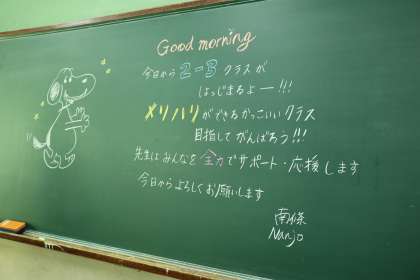 Good morning
今日から 2-3 クラスが
はっじまるよー!!!
メリハリができるかっこいいクラス
目指してがんばろう!!!
先生はみんなを全力でサポート・応援します
今日からよろしくお願いします
南條
Nanjo